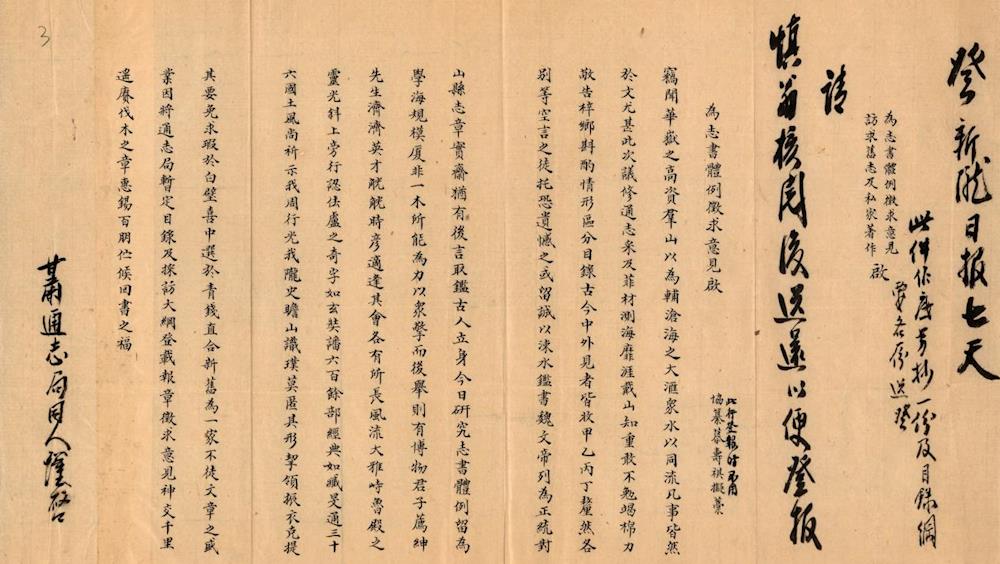 登新隴日報七天
此件作廢另抄一份及目錄綱
要各一份送登
為志書體例徵求意見
訪求舊志及私家著作 啟
請
慎翁核閱後送還以便登報
為志書體例徵求意見啟
此行登報時不用
協纂慕壽祺擬藁
竊聞華嶽之高資羣山以為輔滄海之大滙衆水以同流凡事皆然
於文尤甚此次議修通志釆及菲材測海靡涯戴山知重敢不勉竭棉力
敬告梓鄉斟酌情形區分目錄古今中外見者皆收甲乙丙丁釐然各
別等空言之徒托恐遺憾之或留誠以涑水鑑書魏文帝列為正統對
山縣志章實齋猶有後言取鑑古人立身今日研究志書體例留為
學海規模厦非一木所能為力以衆擎而後舉則有博物君子薦紳
先生濟濟英才觥觥時彦適逢其會各有所長風流大雅峙魯殿之
靈光斜上旁行認佉盧之奇字如玄奘譒六百餘部經典如緎旻通三十
六國土風尚祈示我周行光我隴史瞻山識璞莫匿其形挈領振衣克提
其要免求瑕於白璧喜中選於青錢直合新舊為一家不徒文章之盛
業因將通志局暫定目錄及採訪大綱登載報章徵求意見神交千里
遥賡伐木之章惠錫百朋伫候回書之福
甘肅通志局同人謹啓
3